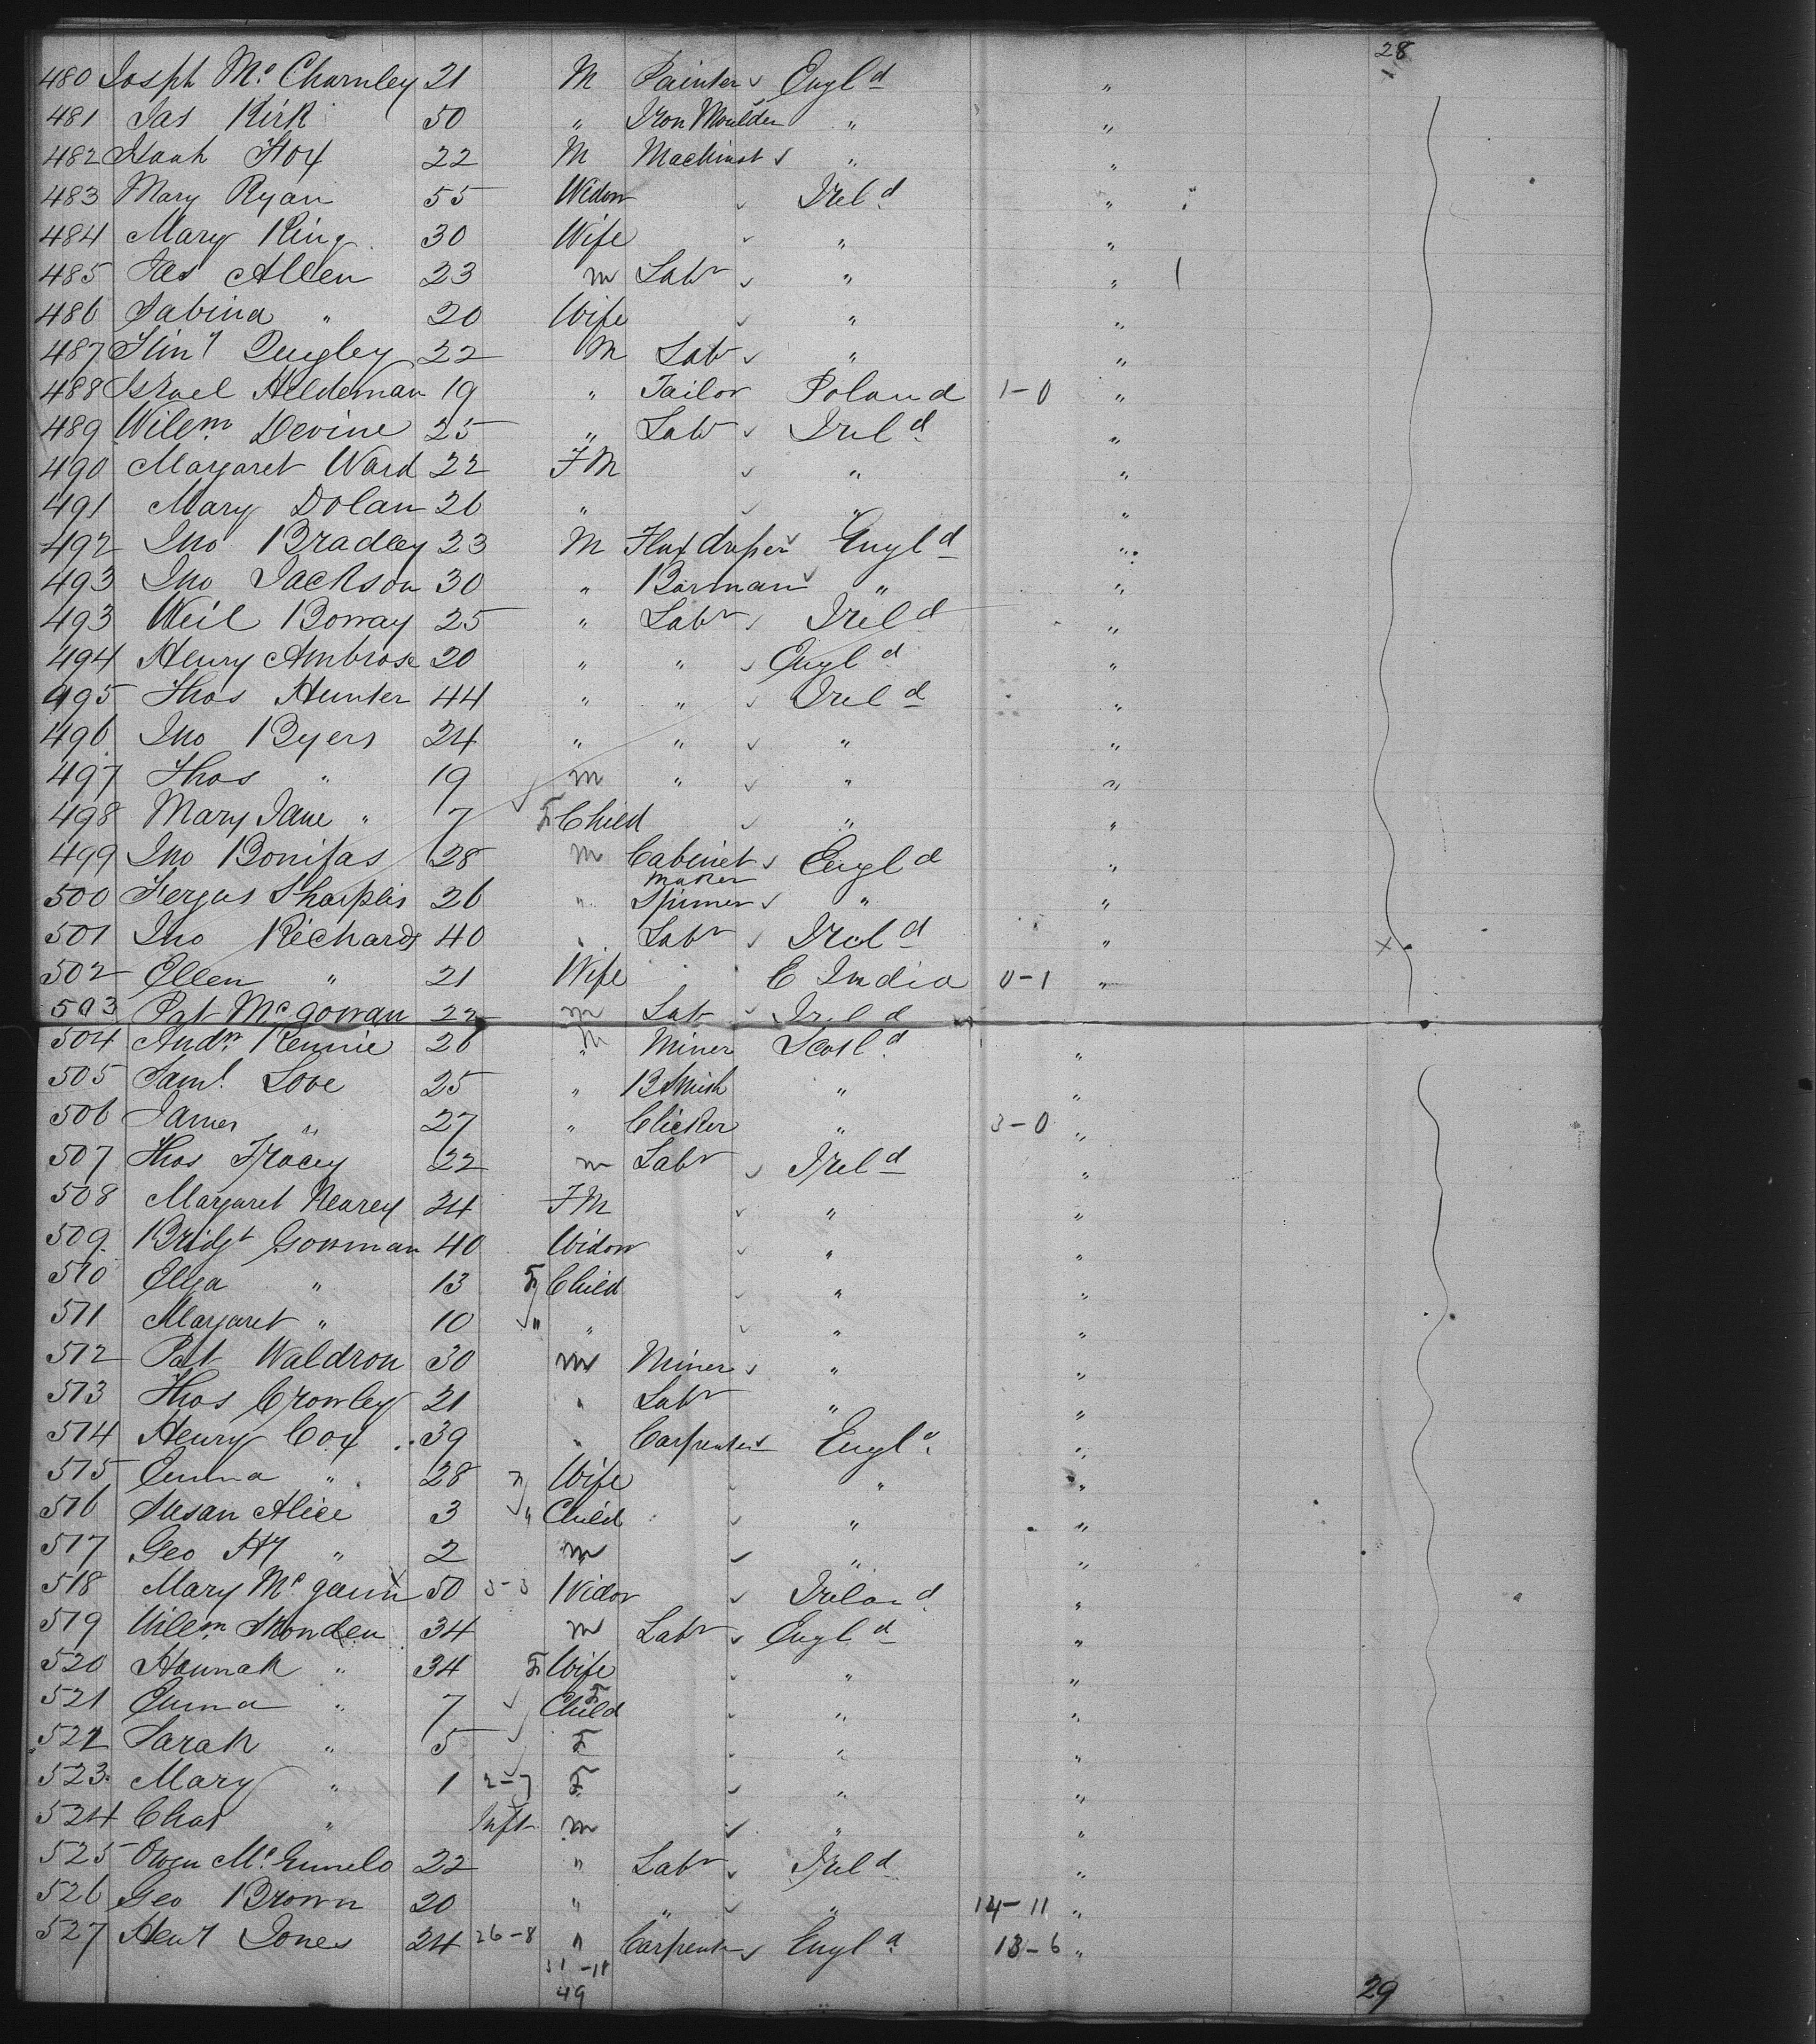 28
480 Josph Mc Charnley 21 M Painter ✓ Engl d "
481 Jas Kirk 50 " Iron Moulder " "
482 Hox 22 M Machinst ✓ " "
483 Mary Ryan 55 Widow ✓ Irel d "
484 Mary King 30 Wife ✓ " "
485 Jas Allen 23 m Labr ✓ " "
486 Sabina " 20 Wife ✓ " "
487 Quigley 22 M Labr ✓ " "
488 Israel Heldeman 19 " Tailor Poland 1-0 "
489 Wilm Devine 25 " Labr ✓ Irel d "
490 Margaret Ward 22 F M ✓ " "
491 Mary Dolan 26 " ✓ " "
492 Jno Bradley 23 M Engl d "
493 Jno Jackson 30 " Barman ✓ " "
493 Boway 25 " Labr ✓ Irel d "
494 Henry Ambrose 20 " " ✓ Engl d "
495 Thos Hunter 44 " " ✓ Irel d "
496 Jno Byers 24 " " ✓ " "
497 Thos " 19 m " ✓ " "
498 Mary Jane " 7 F Child ✓ " "
499 Jno Bonifas 28 m Cabinet ✓ Engl d "
maker
500 Fergus Sharples 26 " Spinner ✓ " "
501 Jno Richards 40 " Labr ✓ Irel d " x
502 Ellen " 21 Wife E India 0-1 "
503 Pat Mc gowan 22 m Labr ✓ Irel d "
504 Andw Rennie 26 M Miner Scotl d "
505 Saml Love 25 " B Smith " "
506 James " 27 " Clicker " 3-0 "
507 Thos Tracey 22 m Labr ✓ Irel d "
508 Margaret Nearey 24 F M ✓ " "
509 Bridgt Gowman 40 Widow ✓ " "
510 Eliza " 13 F Child ✓ " "
511 Margaret " 10 " " ✓ " "
512 Pat Waldron 30 m Miner ✓ " "
513 Thos Crowley 21 " Labr " "
514 Henry Cox 39 " Carpenter ✓ Engl d "
515 Emma " 28 Wife ✓ " "
516 Susan Alice 3 " Child ✓ " "
517 Geo Hy " 2 m ✓ " "
518 Mary Mc gann 50 3-3 Widow ✓ Ireland "
519 Wilm 34 m Labr ✓ Engl d "
520 Hannah " 34 F Wife ✓ " "
521 Emma " 7 F Child ✓ " "
522 Sarah " 5 F ✓ " "
523 Mary " 1 2-7 F ✓ " "
524 Chas " Inft m ✓ " "
525 Owen 22 " Labr ✓ Irel d "
526 Geo Brown 20 " " ✓ " 14-11 "
527 Heny Jones 24 26-8 " Carpenter ✓ Engl d 13-6 "
31-18
49
29